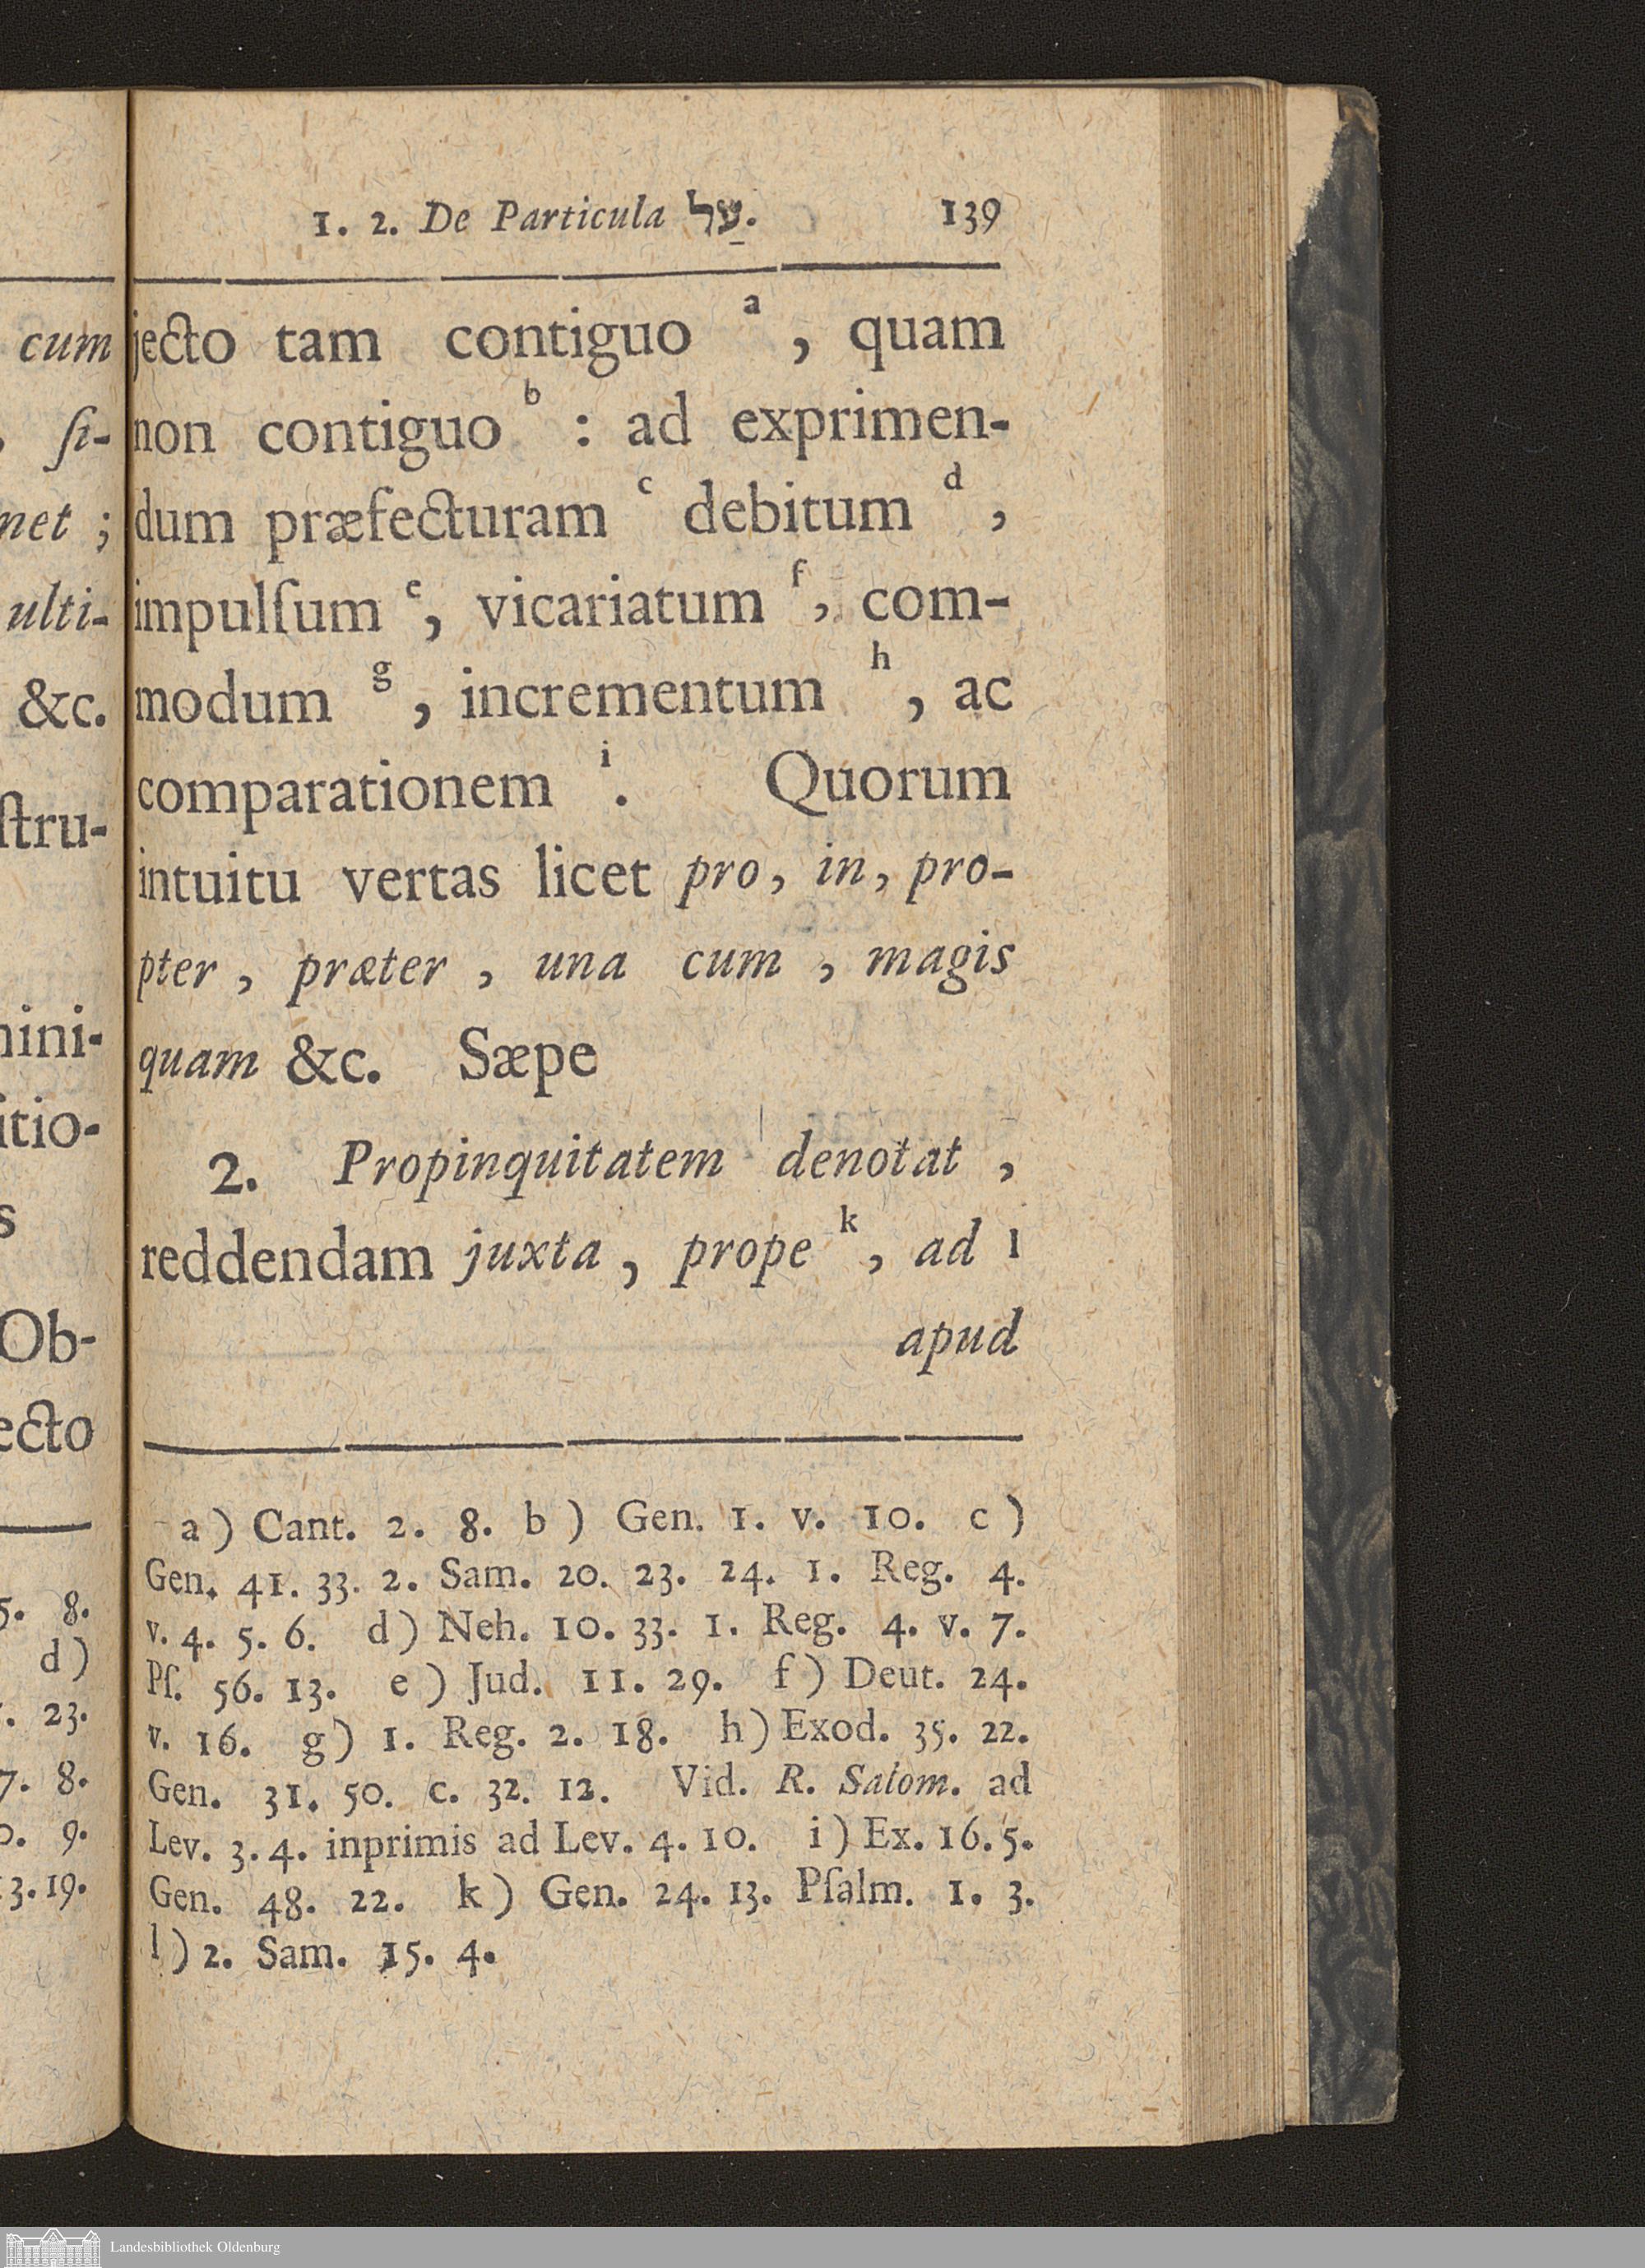 cum
, ſi-
net ;
ulti-
&c.
ſtru-
mini-
itio-
s
Ob-
ecto
5. 8.
d)
. 23.
7. 8.
0. 9.
13. 19.
1. 2. De Particula עַל. 139
jecto tam contiguo a, quam
non contiguo b : ad exprimen-
dum præfecturam c debitum d,
impulſum e, vicariatum f, com-
modum g, incrementum h, ac
comparationem i. Quorum
intuitu vertas licet pro, in, pro-
pter, præter, una cum, magis
quam &c. Sæpe
2. Propinquitatem denotat,
reddendam juxta, prope k, ad l
apud
a) Cant. 2. 8. b) Gen. 1. v. 10. c)
Gen. 41. 33. 2. Sam. 20. 23. 24. 1. Reg. 4.
v. 4. 5. 6. d) Neh. 10. 33. 1. Reg. 4. v. 7.
Pſ. 56. 13. e) Jud. 11. 29. f) Deut. 24.
v. 16. g) 1. Reg. 2. 18. h) Exod. 35. 22.
Gen. 31. 50. c. 32. 12. Vid. R. Salom. ad
Lev. 3. 4. inprimis ad Lev. 4. 10. i) Ex. 16. 5.
Gen. 48. 22. k) Gen. 24. 13. Pſalm. 1. 3.
l) 2. Sam. 15. 4.
Landesbibliothek Oldenburg